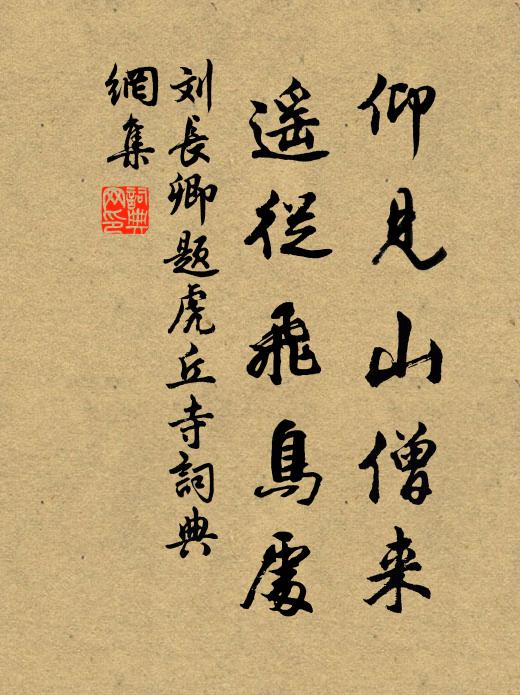 仰見山僧来
遥從飛鳥處
刘長卿題虎丘寺詞典
網集
詞典
网印